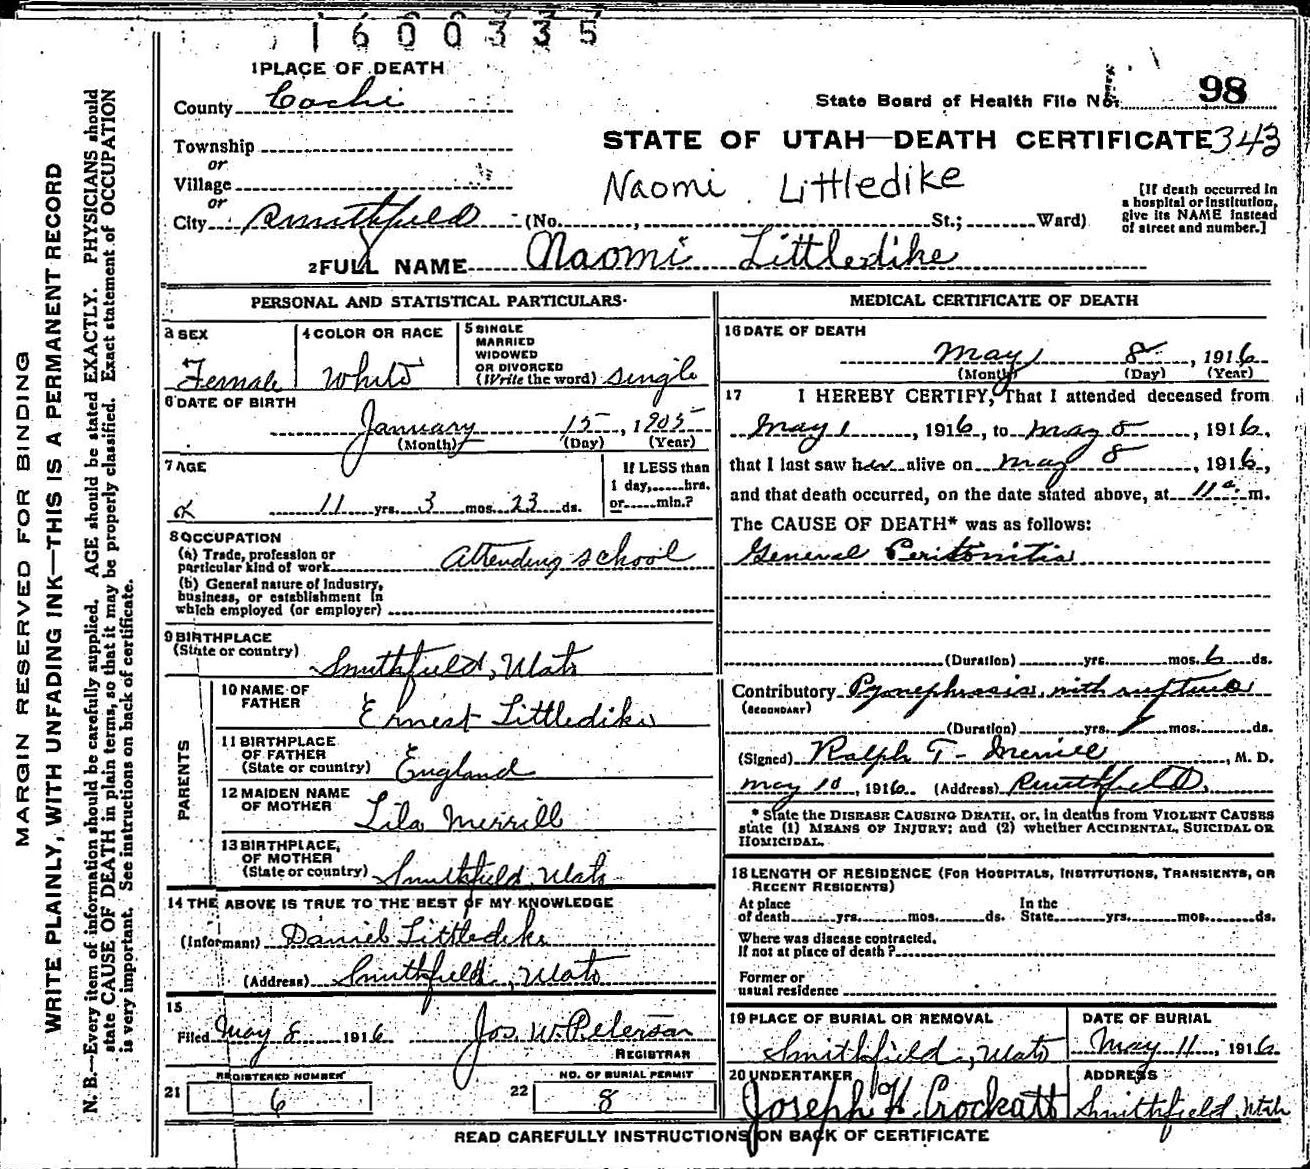 1600335
1 PLACE OF DEATH
County Cache
State Board of Health File No. 98
STATE OF UTAH—DEATH CERTIFICATE 343
Township
or
Village
or
City Smithfield (No. , St.; Ward)
Naomi Littledike
[If death occurred in
a hospital or institution,
give its NAME instead
of street and number.]
2 FULL NAME Naomi Littledike
PERSONAL AND STATISTICAL PARTICULARS
3 SEX
Female
4 COLOR OR RACE
White
5 SINGLE
MARRIED
WIDOWED
OR DIVORCED
(Write the word) single
6 DATE OF BIRTH
January 15, 1905
(Month) (Day) (Year)
7 AGE
11 yrs. 3 mos. 23 ds.
If LESS than
1 day, hrs.
or min.?
8 OCCUPATION
(a) Trade, profession or
particular kind of work Attending school
(b) General nature of Industry,
business, or establishment in
which employed (or employer)
9 BIRTHPLACE
(State or country) Smithfield, Utah
PARENTS
10 NAME OF
FATHER Ernest Littledike
11 BIRTHPLACE
OF FATHER
(State or country) England
12 MAIDEN NAME
OF MOTHER Lila Merrill
13 BIRTHPLACE,
OF MOTHER
(State or country) Smithfield, Utah
14 THE ABOVE IS TRUE TO THE BEST OF MY KNOWLEDGE
(Informant) Daniel Littledike
(Address) Smithfield, Utah
15
Filed May 8 1916 Jos. W. Peterson
REGISTRAR
21 REGISTERED NUMBER 6
22 NO. OF BURIAL PERMIT 8
MEDICAL CERTIFICATE OF DEATH
16 DATE OF DEATH
May 8, 1916
(Month) (Day) (Year)
17 I HEREBY CERTIFY, That I attended deceased from
May 1, 1916, to May 8, 1916,
that I last saw her alive on May 8, 1916,
and that death occurred, on the date stated above, at 11 a. m.
The CAUSE OF DEATH* was as follows:
General Peritonitis
(Duration) yrs. mos. 6 ds.
Contributory Pyonephrosis with rupture
(SECONDARY)
(Duration) yrs. mos. ds.
(Signed) Ralph T. Merrill, M. D.
May 10, 1916 (Address) Smithfield
* State the DISEASE CAUSING DEATH, or, in deaths from VIOLENT CAUSES
state (1) MEANS OF INJURY; and (2) whether ACCIDENTAL, SUICIDAL OR
HOMICIDAL.
18 LENGTH OF RESIDENCE (FOR HOSPITALS, INSTITUTIONS, TRANSIENTS, OR
RECENT RESIDENTS)
At place In the
of death yrs. mos. ds. State yrs. mos. ds.
Where was disease contracted,
If not at place of death?
Former or
usual residence
19 PLACE OF BURIAL OR REMOVAL
Smithfield, Utah
DATE OF BURIAL
May 11, 1916
20 UNDERTAKER
Joseph H. Crockatt
ADDRESS
Smithfield, Utah
READ CAREFULLY INSTRUCTIONS ON BACK OF CERTIFICATE
MARGIN RESERVED FOR BINDING
WRITE PLAINLY, WITH UNFADING INK—THIS IS A PERMANENT RECORD
N. B.—Every item of information should be carefully supplied. AGE should be stated EXACTLY. PHYSICIANS should
state CAUSE OF DEATH in plain terms, so that it may be properly classified. Exact statement of OCCUPATION
is very important. See instructions on back of certificate.